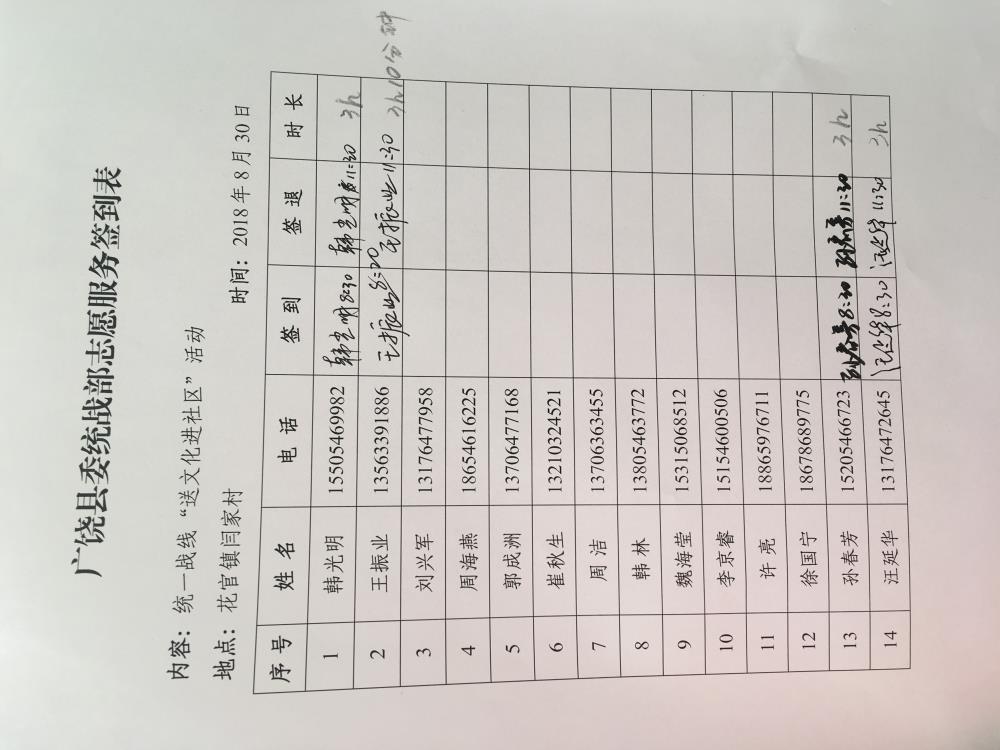 广饶县委统战部志愿服务签到表
内容：统一战线“送文化进社区”活动
地点：花官镇闫家村 时间：2018年8月30日
序号 姓名 电话 签到 签退 时长
1 韩光明 15505469982 韩光明 8:30 韩光明 11:30 3h
2 王振业 13563391886 王振业 8:20 王振业 11:30 3h10分钟
3 刘兴军 13176477958
4 周海燕 18654616225
5 郭成洲 13706477168
6 崔秋生 13210324521
7 周洁 13706363455
8 韩林 13805463772
9 魏海莹 15315068512
10 李京睿 15154600506
11 许亮 18865976711
12 徐国宁 18678689775
13 孙春芳 15205466723 孙春芳 8:30 孙春芳 11:30 3h
14 汪延华 13176472645 汪延华 8:30 汪延华 11:30 3h